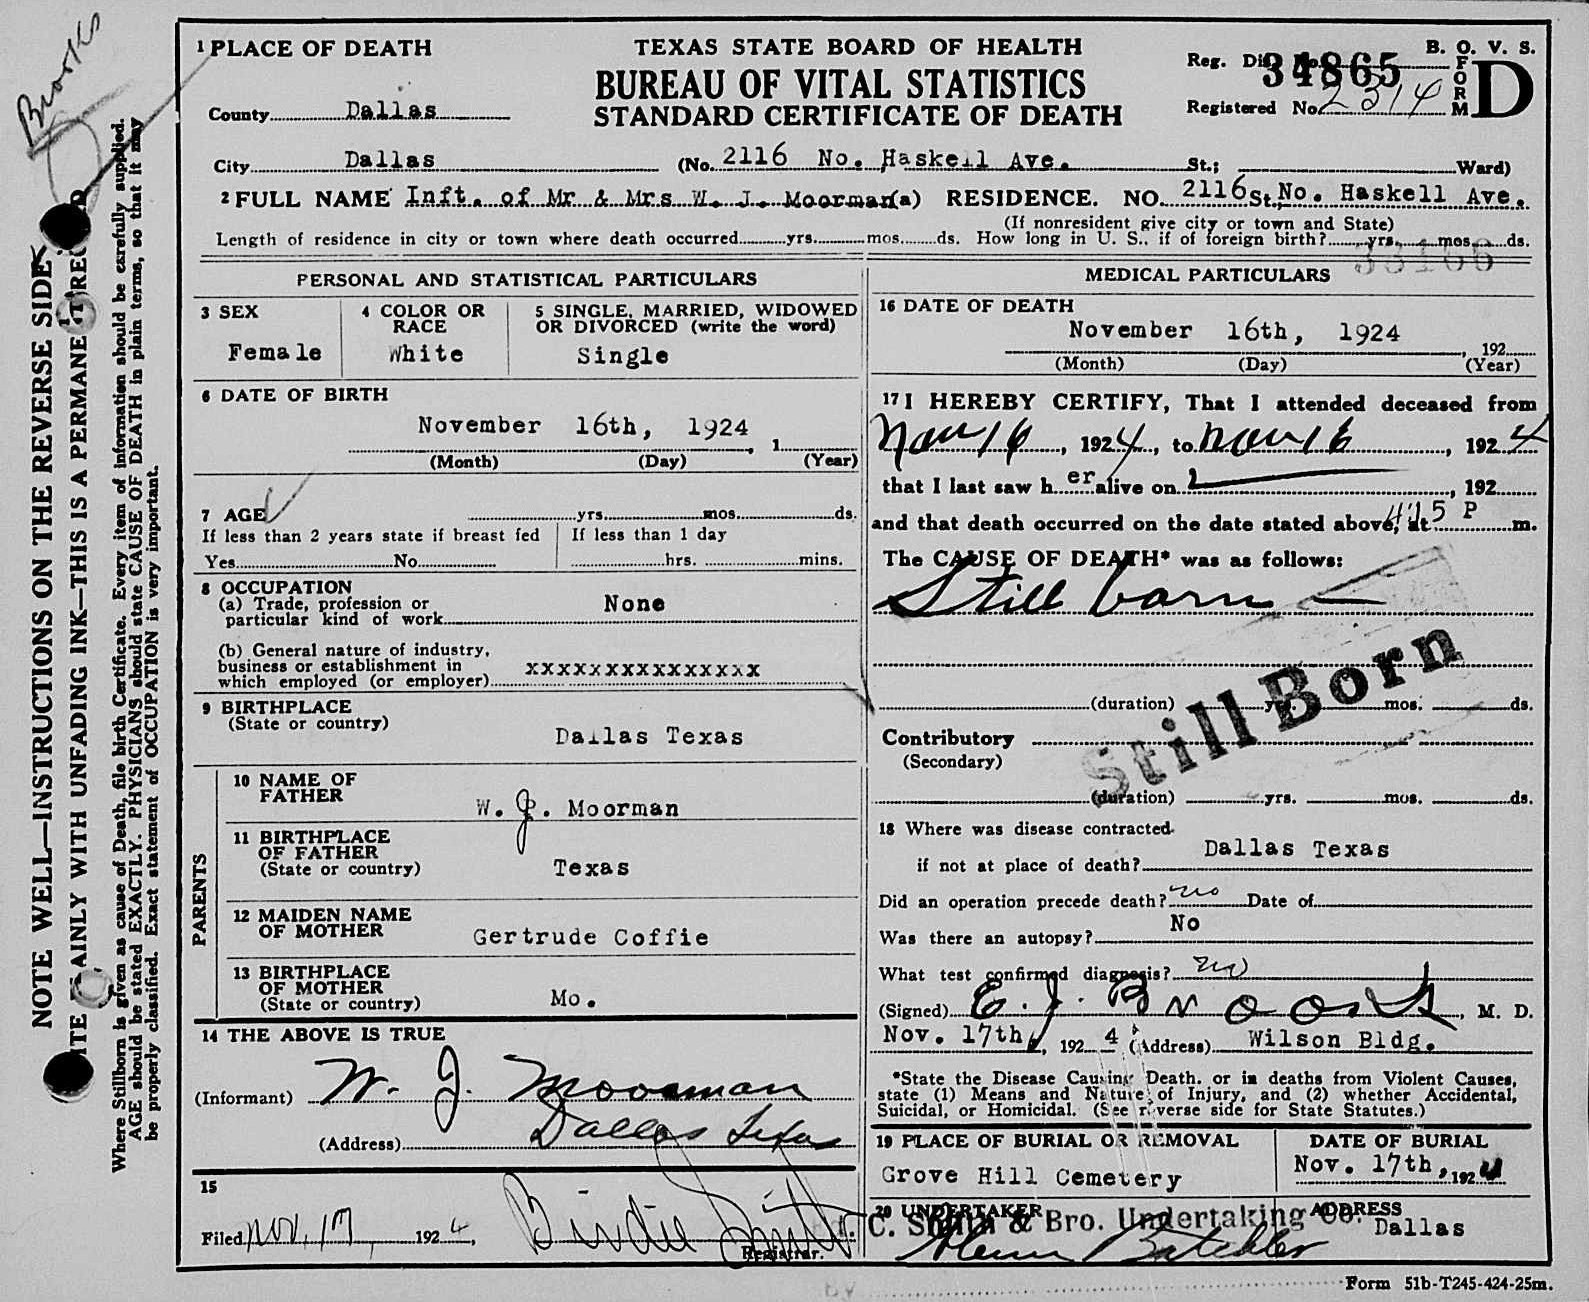 Brooks
NOTE WELL—INSTRUCTIONS ON THE REVERSE SIDE
AINLY WITH UNFADING INK—THIS IS A PERMANE
Where Stillborn is given as cause of Death, file birth Certificate. Every item of information should be carefully supplied.
AGE should be stated EXACTLY. PHYSICIANS should state CAUSE OF DEATH in plain terms, so that it may
be properly classified. Exact statement of OCCUPATION is very important.
1 PLACE OF DEATH
TEXAS STATE BOARD OF HEALTH
BUREAU OF VITAL STATISTICS
STANDARD CERTIFICATE OF DEATH
B. O. V. S.
FORM D
Reg. Dis. No. 34865
Registered No. 2314
County Dallas
City Dallas (No. 2116 No. Haskell Ave. St.; Ward)
2 FULL NAME Inft. of Mr & Mrs W. J. Moorman (a) RESIDENCE. NO. 2116 St. No. Haskell Ave.
(If nonresident give city or town and State)
Length of residence in city or town where death occurred yrs. mos. ds. How long in U. S., if of foreign birth? yrs. mos. ds.
PERSONAL AND STATISTICAL PARTICULARS
3 SEX
Female
4 COLOR OR RACE
White
5 SINGLE, MARRIED, WIDOWED OR DIVORCED (write the word)
Single
6 DATE OF BIRTH
November 16th, 1924
, 1
(Month) (Day) (Year)
7 AGE yrs. mos. ds.
If less than 2 years state if breast fed
Yes No
If less than 1 day
hrs. mins.
8 OCCUPATION
(a) Trade, profession or
particular kind of work None
(b) General nature of industry,
business or establishment in
which employed (or employer) xxxxxxxxxxxxxxx
9 BIRTHPLACE
(State or country)
Dallas Texas
PARENTS
10 NAME OF FATHER
W. J. Moorman
11 BIRTHPLACE OF FATHER
(State or country) Texas
12 MAIDEN NAME OF MOTHER
Gertrude Coffie
13 BIRTHPLACE OF MOTHER
(State or country) Mo.
14 THE ABOVE IS TRUE
(Informant) W. J. Moorman
(Address) Dallas Texas
15
Filed Nov. 17, 1924, Birdie Smitt
Registrar.
MEDICAL PARTICULARS
16 DATE OF DEATH
November 16th, 1924
, 192
(Month) (Day) (Year)
17 I HEREBY CERTIFY, That I attended deceased from
Nov 16, 1924, to Nov 16, 1924
that I last saw her alive on , 192
and that death occurred on the date stated above, at 4:15 P m.
The CAUSE OF DEATH* was as follows:
Still born —
Still Born
(duration) yrs. mos. ds.
Contributory
(Secondary)
(duration) yrs. mos. ds.
18 Where was disease contracted
if not at place of death? Dallas Texas
Did an operation precede death? no Date of
Was there an autopsy? No
What test confirmed diagnosis? no
(Signed) E. J. Brooks, M. D.
Nov. 17th, 1924 (Address) Wilson Bldg.
*State the Disease Causing Death, or in deaths from Violent Causes,
state (1) Means and Nature of Injury, and (2) whether Accidental,
Suicidal, or Homicidal. (See reverse side for State Statutes.)
19 PLACE OF BURIAL OR REMOVAL
Grove Hill Cemetery
DATE OF BURIAL
Nov. 17th, 1924
20 UNDERTAKER
C. Smith & Bro. Undertaking Co.
ADDRESS
Dallas
Form 51b-T245-424-25m.